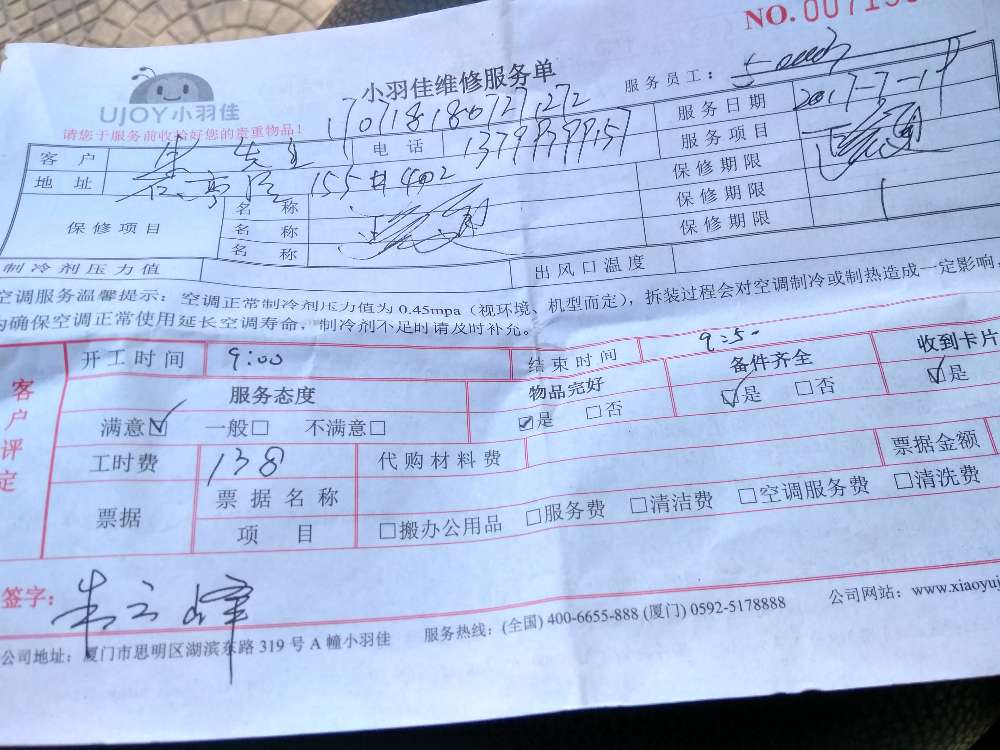 NO.
UJOY小羽佳
小羽佳维修服务单
服务员工：
请您于服务前收拾好您的贵重物品！
170718180727272
服务日期 2017-7-19
客户 朱先生 电话 13799399157 服务项目
地址 155#402 保修期限
保修项目 名称 保修期限
名称 保修期限
名称
制冷剂压力值 出风口温度
空调服务温馨提示：空调正常制冷剂压力值为 0.45mpa（视环境、机型而定），拆装过程会对空调制冷或制热造成一定影响，
为确保空调正常使用延长空调寿命，制冷剂不足时请及时补充。
客户评定
开工时间 9:00 结束时间 9:50
服务态度 物品完好 备件齐全 收到卡片
满意☑ 一般□ 不满意□ ☑是 □否 ☑是 □否 ☑是
工时费 138 代购材料费 票据金额
票据 票据名称
项目 □搬办公用品 □服务费 □清洁费 □空调服务费 □清洗费
签字：朱云峰
公司地址：厦门市思明区湖滨东路 319 号 A 幢小羽佳 服务热线：(全国) 400-6655-888 (厦门) 0592-5178888 公司网站：www.xiaoyuj